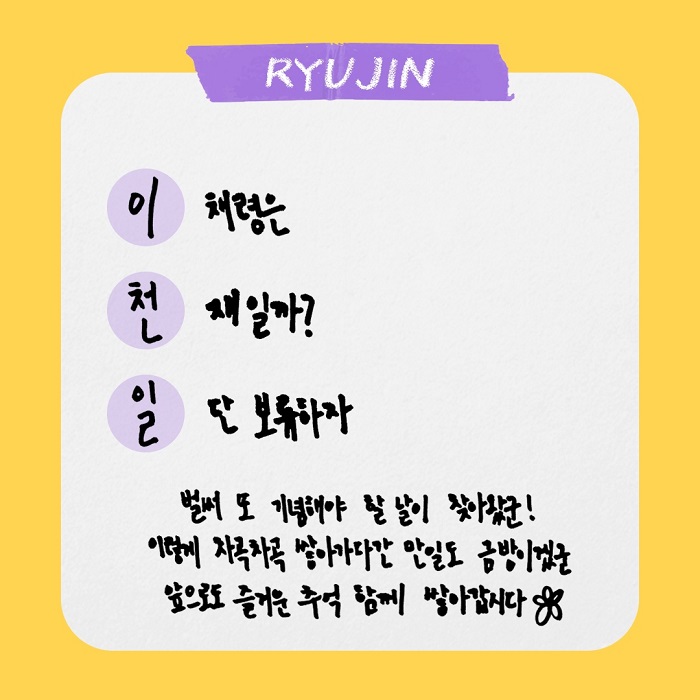 RYUJIN
이 채령은
천 재일까?
일 단 보류하자
벌써 또 기념해야 할 날이 찾아왔군!
이렇게 차곡차곡 쌓아가다간 만일도 금방이겠군
앞으로도 즐거운 추억 함께 쌓아갑시다